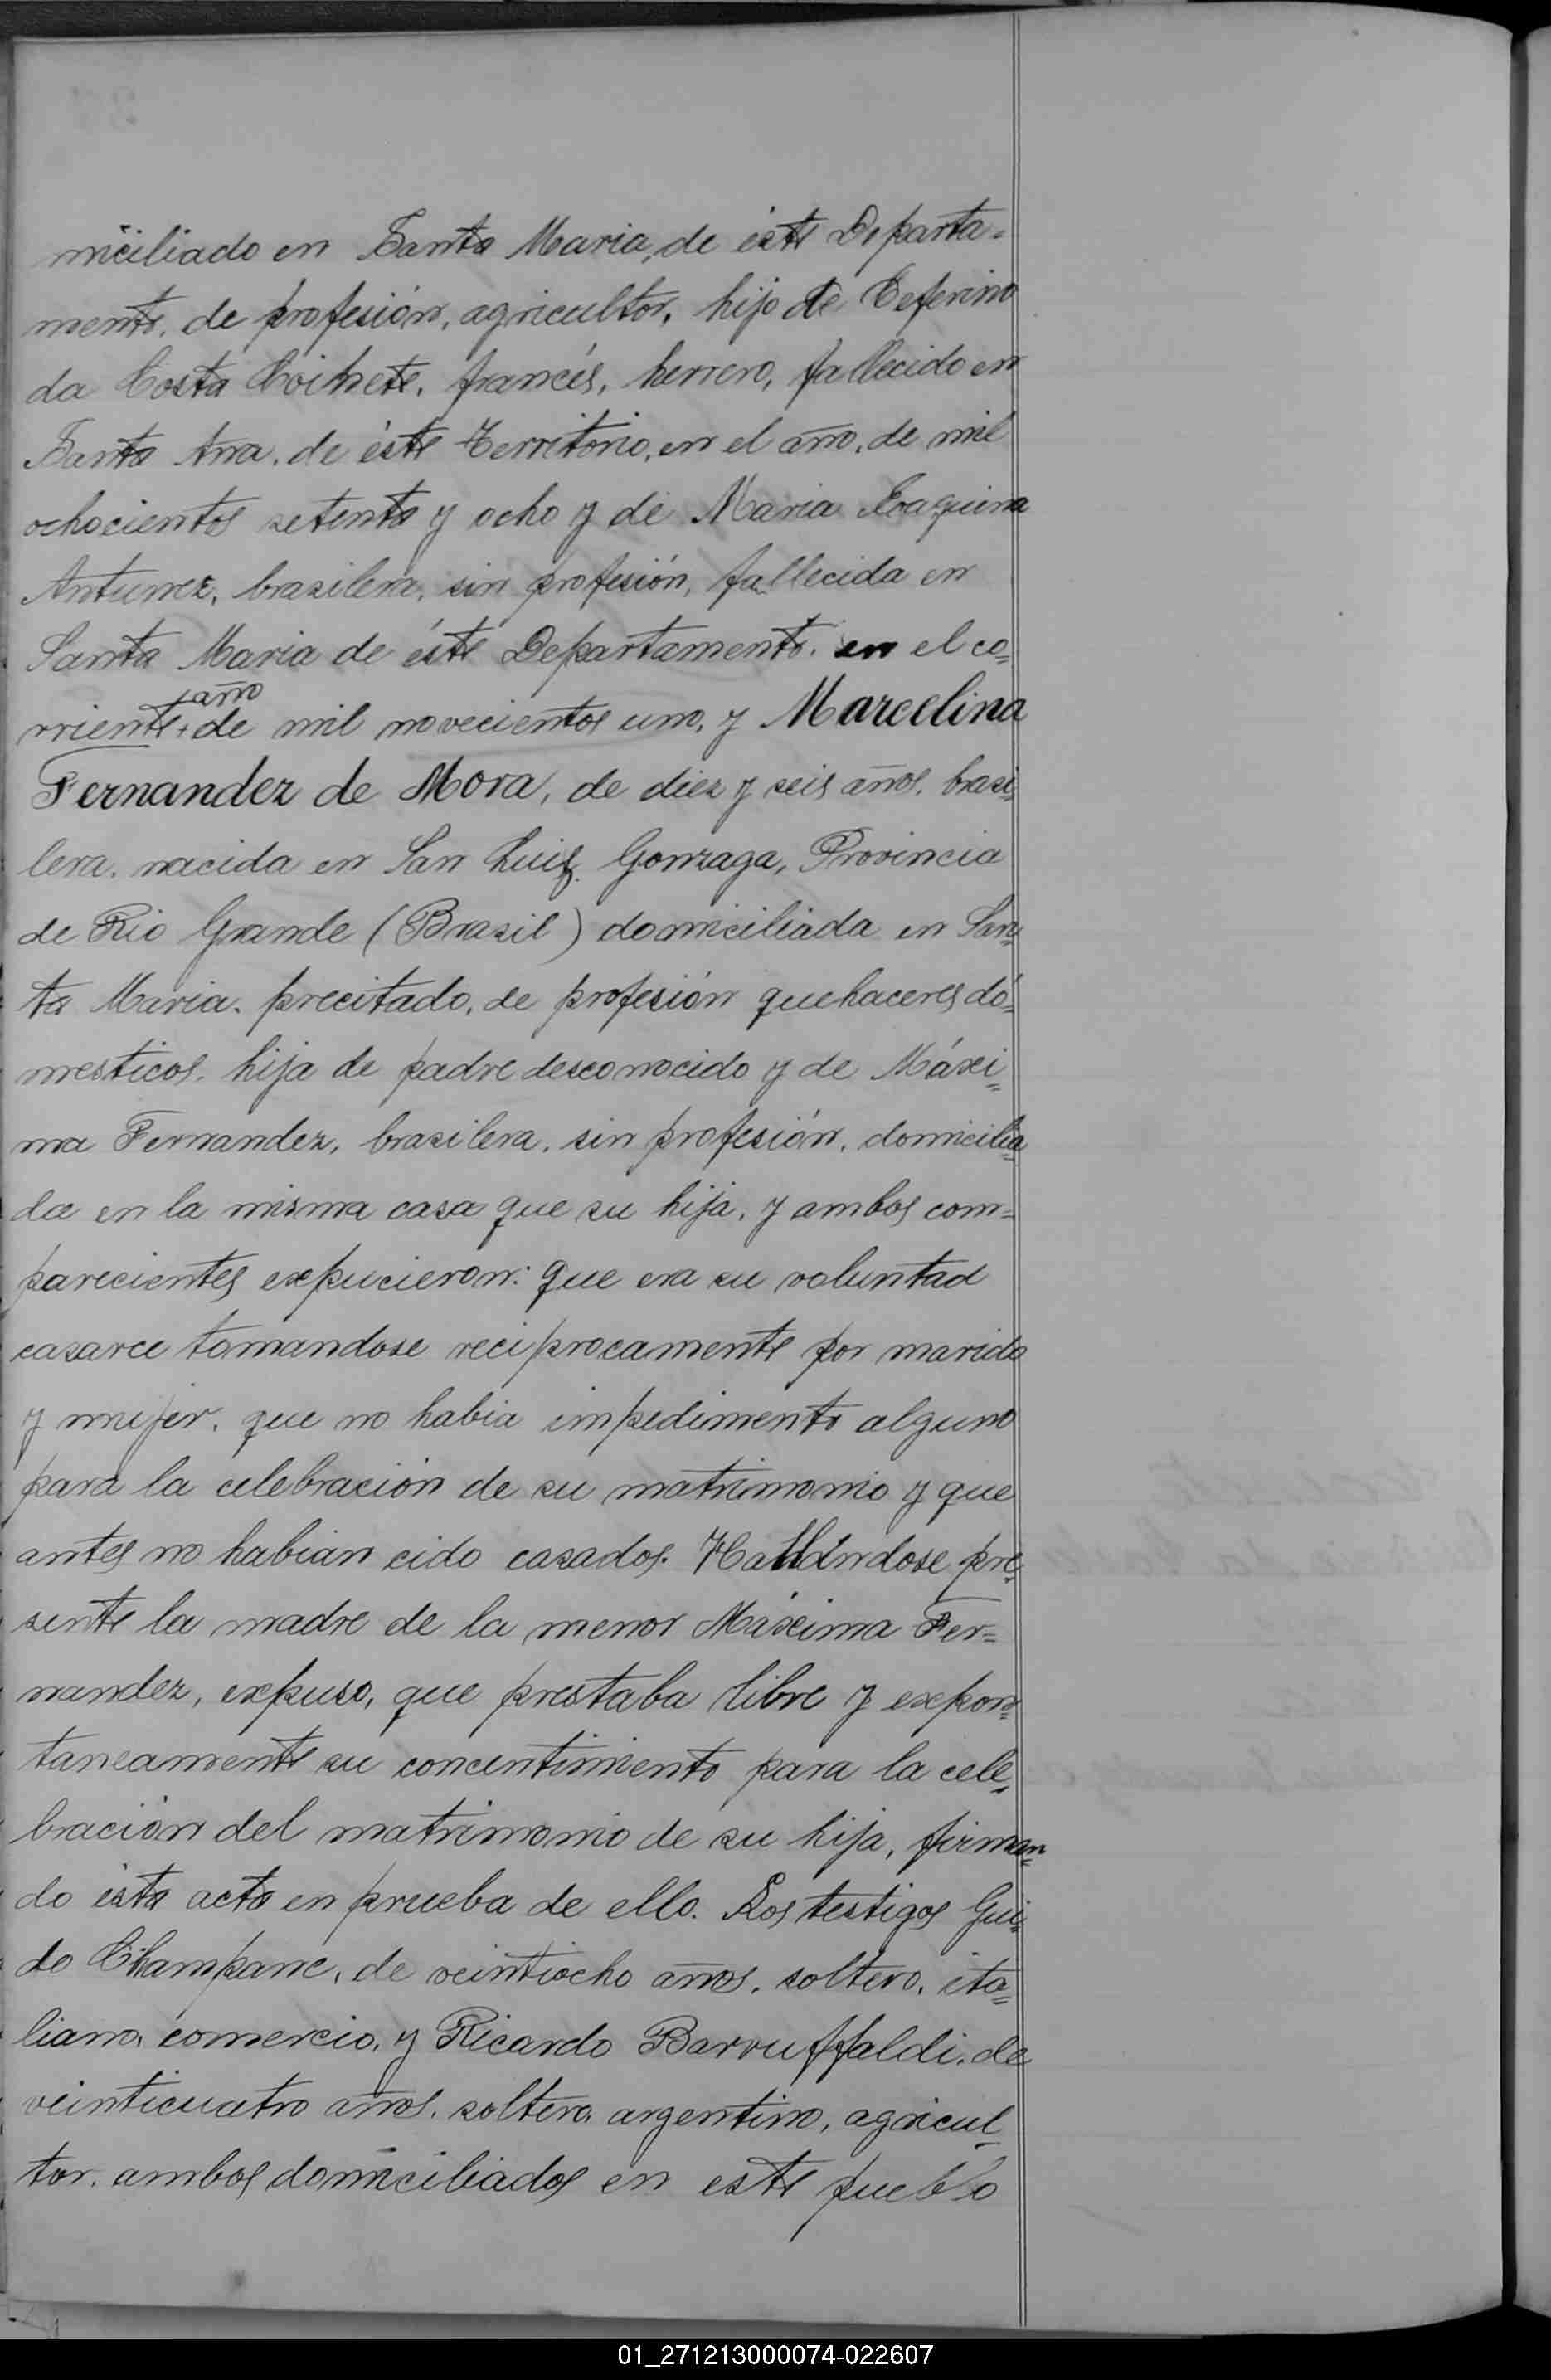 miciliado en Santa Maria, de éste Departa=
mento, de profesión, agricultor, hijo de Ceferino
da Costa Coihete, francés, herrero, fallecido en
Santa Ana, de éste Territorio, en el año, de mil
ochocientos setenta y ocho y de Maria Joaquina
Antunez, brasilera, sin profesión, fallecida en
Santa Maria de éste Departamento, en el co=
rriente año de mil novecientos uno, y Marcelina
Fernandez de Mora, de diez y seis años, brasi=
lera, nacida en San Luis Gonzaga, Provincia
de Rio Grande (Brasil) domiciliada en San=
ta Maria, precitado, de profesión quehaceres dó=
mesticos, hija de padre desconocido y de Máxi=
ma Fernandez, brasilera, sin profesión, domicilia=
da en la misma casa que su hija, y ambos com=
parecientes expucieron: que era su voluntad
casarce tomandose reciprocamente por marido
y mujer, que no habia impedimento alguno
para la celebración de su matrimonio y que
antes no habian cido casados. Hallándose pre=
sente la madre de la menor Máxima Fer=
nandez, expuso, que prestaba libre y expon=
taneamente su concentimiento para la cele=
bración del matrimonio de su hija, firman=
do ésta acta en prueba de ello. Los testigos Gui=
do Champane, de veintiocho años, soltero, ita=
liano, comercio, y Ricardo Barruffaldi, de
veinticuatro años, soltero, argentino, agricul=
tor, ambos domiciliados en este pueblo
01_271213000074-022607